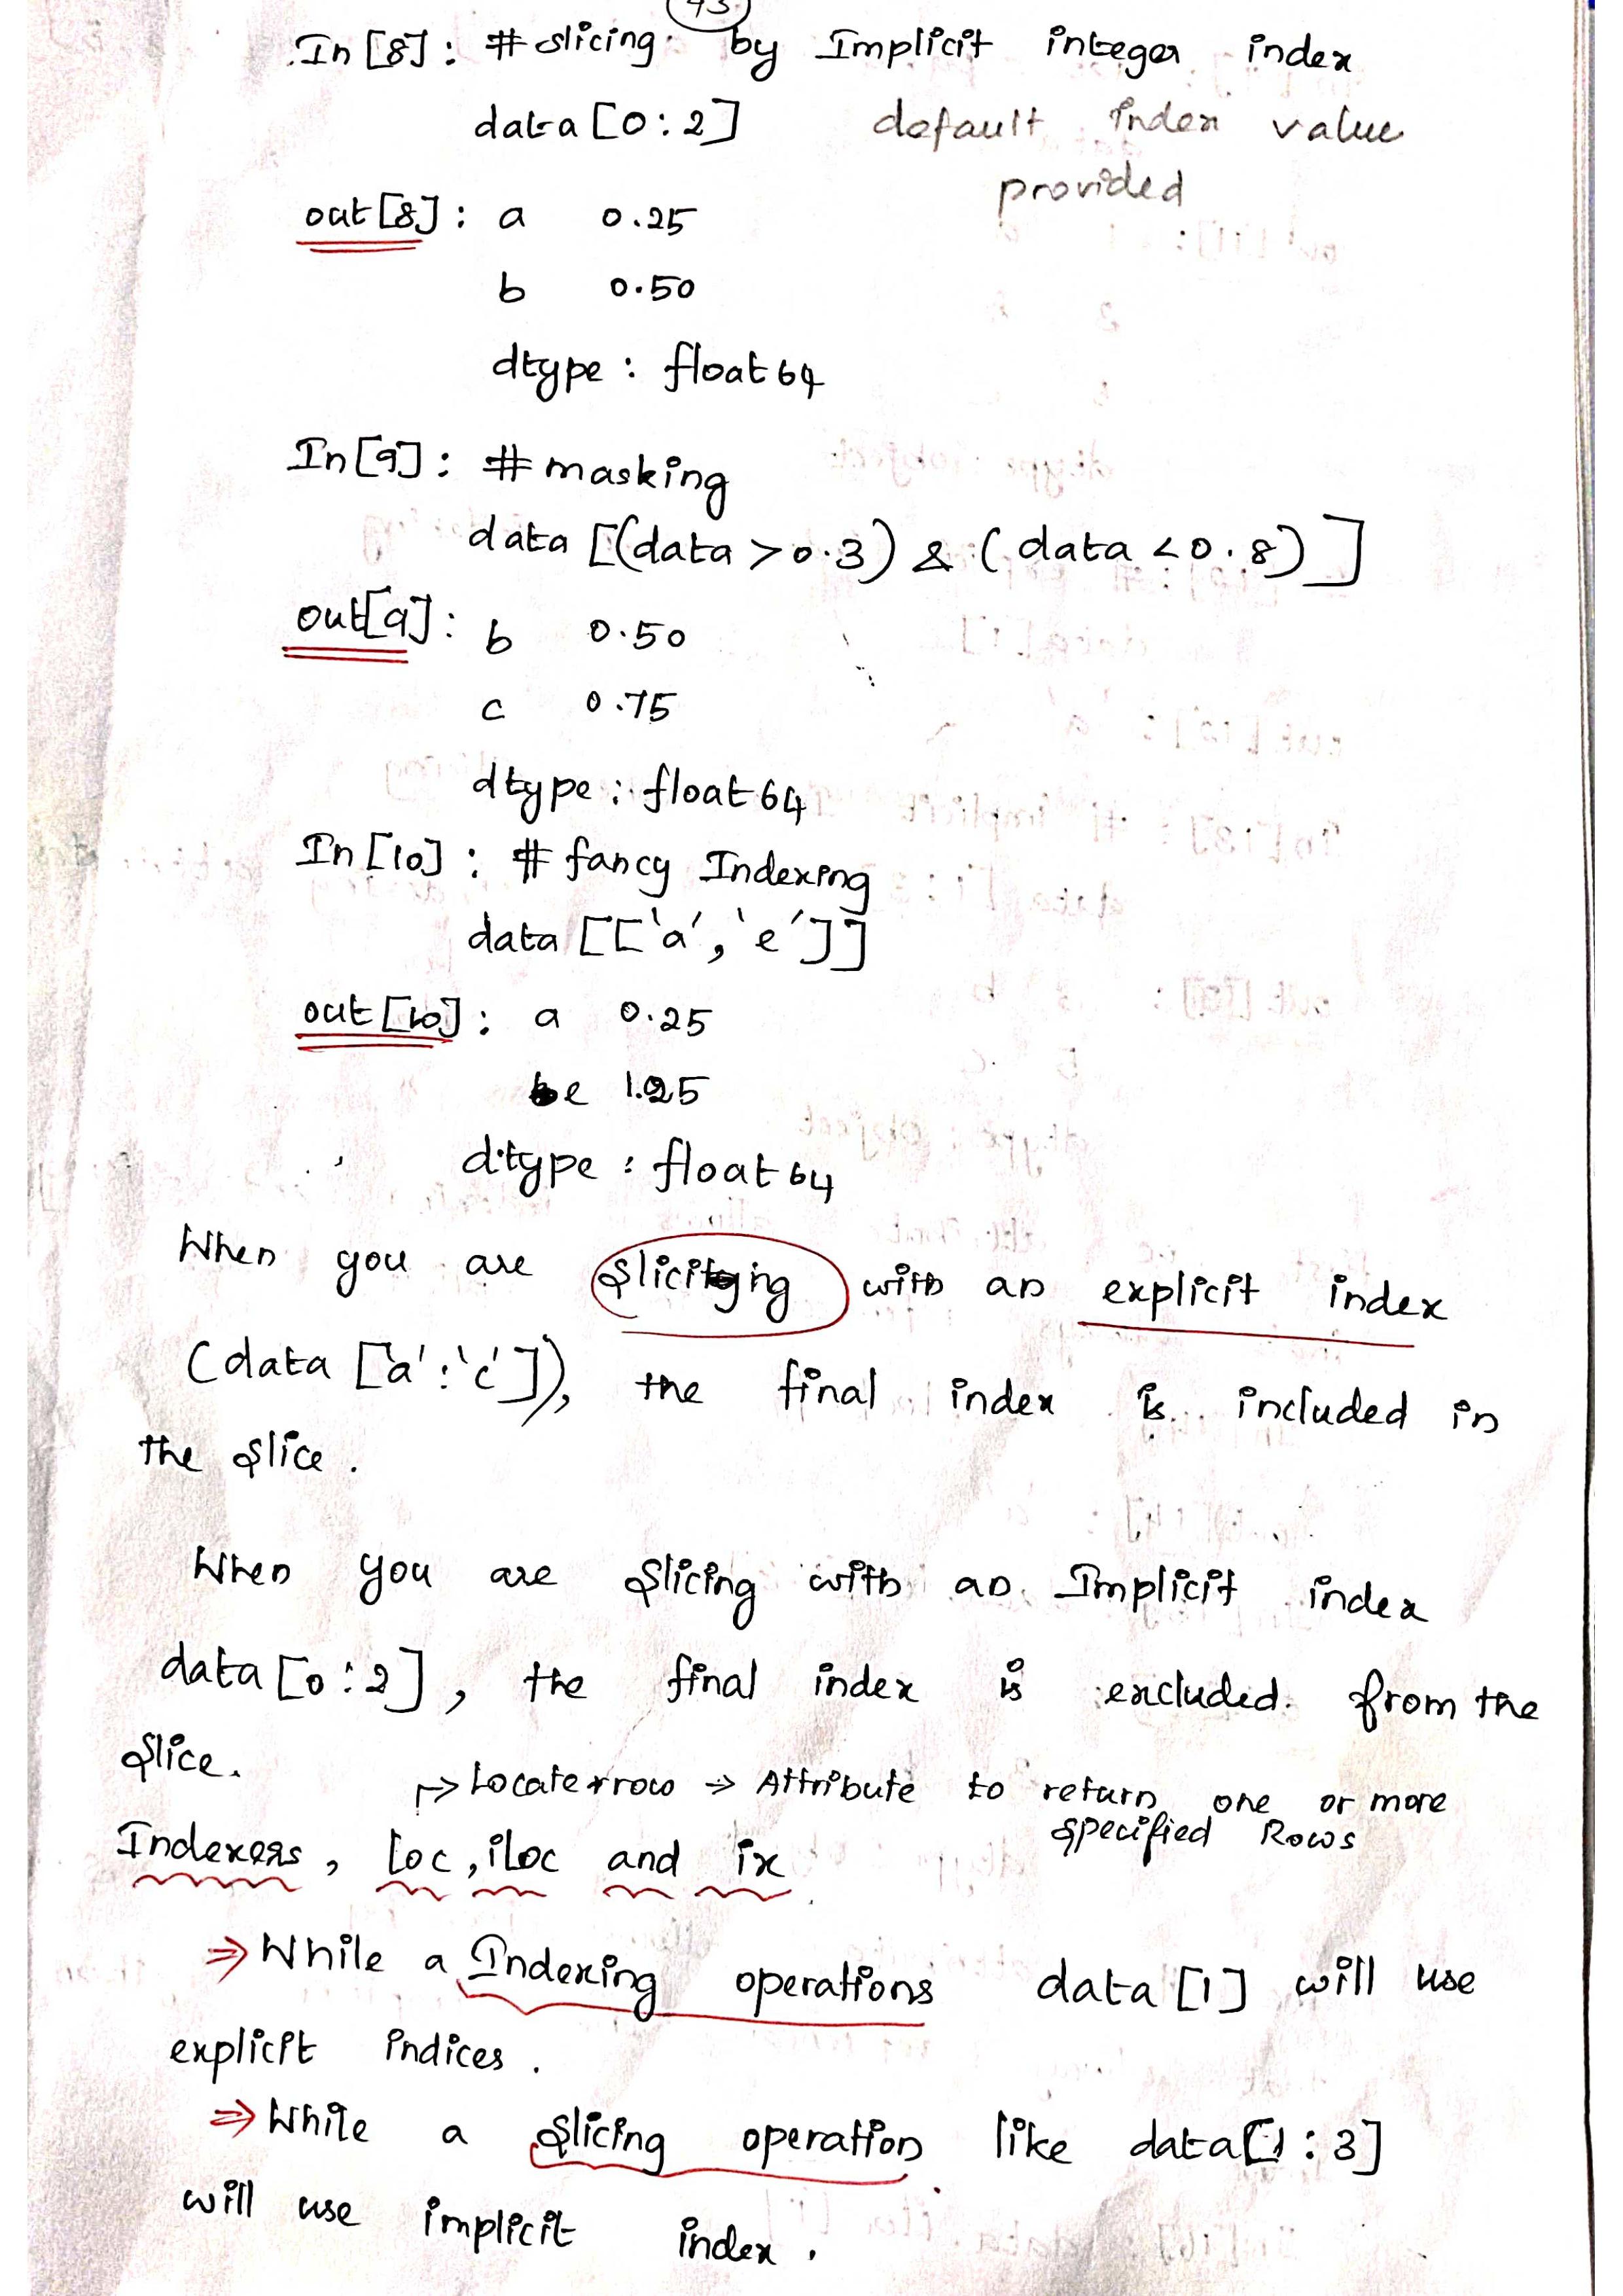 In [8]: # slicing by Implicit integer index
data [0:2] default index value
provided
out [8]: a 0.25
b 0.50
dtype: float 64
In [9]: # masking
data [(data >0.3) & (data <0.8)]
out[9]: b 0.50
c 0.75
dtype: float 64
In [10]: # fancy Indexing
data [['a', 'e']]
out [10]: a 0.25
e 1.25
dtype: float 64
When you are slicing with an explicit index
(data ['a':'c']), the final index is included in
the slice.
When you are slicing with an Implicit index
data [0:2], the final index is excluded from the
slice.
↱> Locate row ⇒ Attribute to return one or more
specified Rows
Indexers, loc, iloc and ix
⇒ While a Indexing operations data [1] will use
explicit indices.
⇒ While a slicing operation like data[1:3]
will use implicit index.